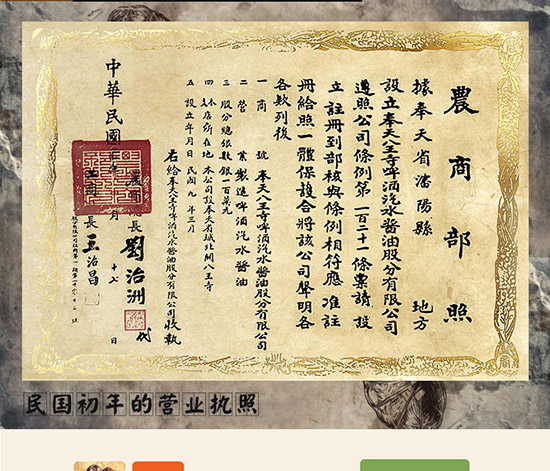 農商部照
據奉天省瀋陽縣 地方
設立奉天八王寺啤酒汽水醬油股分有限公司
遵照公司條例第一百二十一條稟請設
立註冊到部核與條例相符應准註
冊給照一體保護合將該公司聲明各
各欵列後
一 商 號 奉天八王寺啤酒汽水醬油股分有限公司
二 營 業 製造啤酒汽水醬油
三 股分總銀數 銀一百萬元
四 本支店所在地 本公司設奉天省城北關八王寺
五 設立年月日 民國九年三月
右給奉天八王寺啤酒汽水醬油股分有限公司收執
長劉治洲代
長王治昌
中華民國 年 月 日
民国初年的营业执照